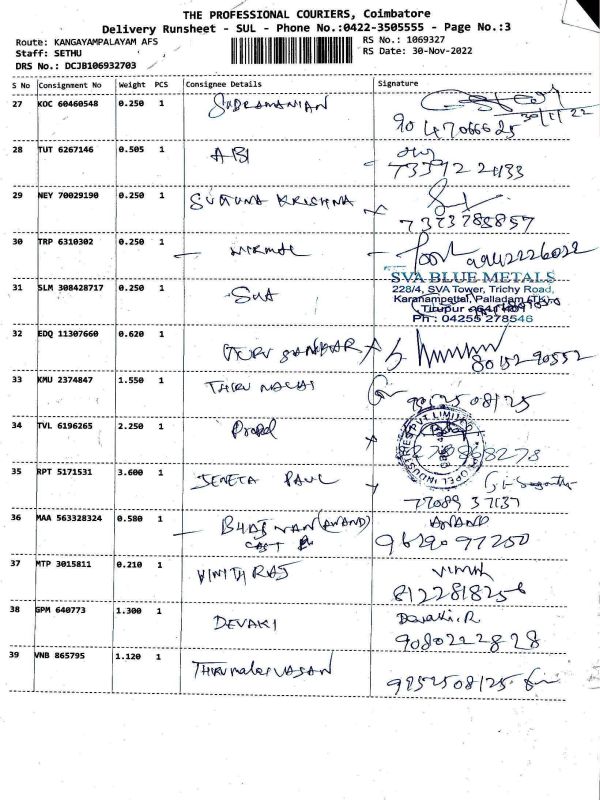 THE PROFESSIONAL COURIERS, Coimbatore
Delivery Runsheet - SUL - Phone No.:0422-3505555 - Page No.:3
Route: KANGAYAMPALAYAM AFS
RS No.: 1069327
Staff: SETHU
RS Date: 30-Nov-2022
DRS No.: DCJB106932703
S No Consignment No Weight PCS Consignee Details Signature
27 KOC 60460548 0.250 1 SUBRAMANIAN
30/11/22
90 47066625
28 TUT 6267146 0.505 1 ABI
73392 24133
29 NEY 70029190 0.250 1 SUGUNA KRISHNA
7373788857
30 TRP 6310302 0.250 1 NIRMAL
9942226022
31 SLM 308428717 0.250 1 SVA
SVA BLUE METALS
228/4, SVA Tower, Trichy Road,
Karanampettai, Palladam (TK),
Tirupur
Ph : 04255 278546
32 EDQ 11307660 0.620 1 GURU SANKAR
80152 90552
33 KMU 2374847 1.550 1 THIRUMALAI
98525 08125
34 TVL 6196265 2.250 1 Propel
35 RPT 5171531 3.600 1 JENETA PAUL
77089 37137
36 MAA 563328324 0.580 1 BHAGVAN (ANAND) ANAND
96290 97250
37 MTP 3015811 0.210 1 VINITH RAJ
8122818256
38 GPM 640773 1.300 1 DEVAKI Devaki.R
9080222828
39 VNB 865795 1.120 1 THIRUMALAI VASAN
9852508125